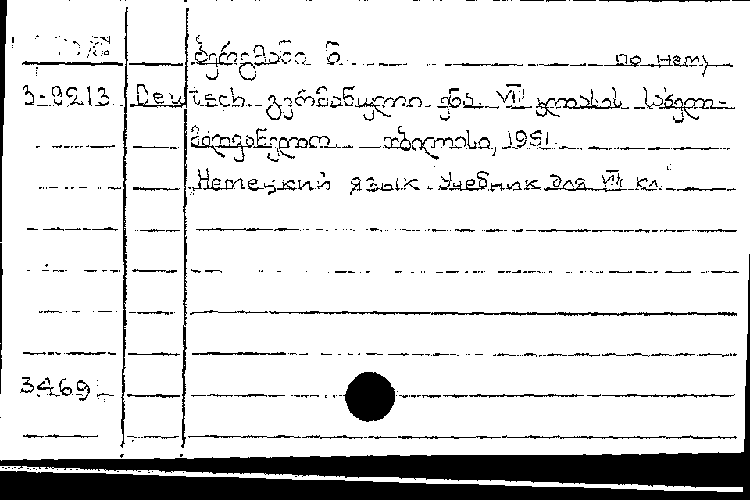 ბერგმანი ნ. по нем,
3-9213 Deutsch გერმანული ენა. VII კლასის სახელ-
მძღვანელო თბილისი, 1951.
Немецкий язык. Учебник для VII кл.
3469